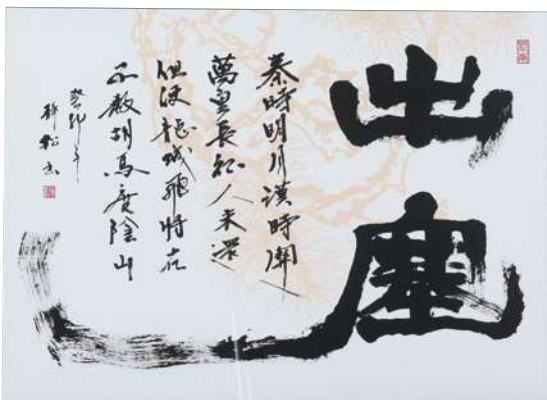 出塞
秦時明月漢時關
萬里長征人未還
但使龍城飛將在
不教胡馬度陰山
癸卯年